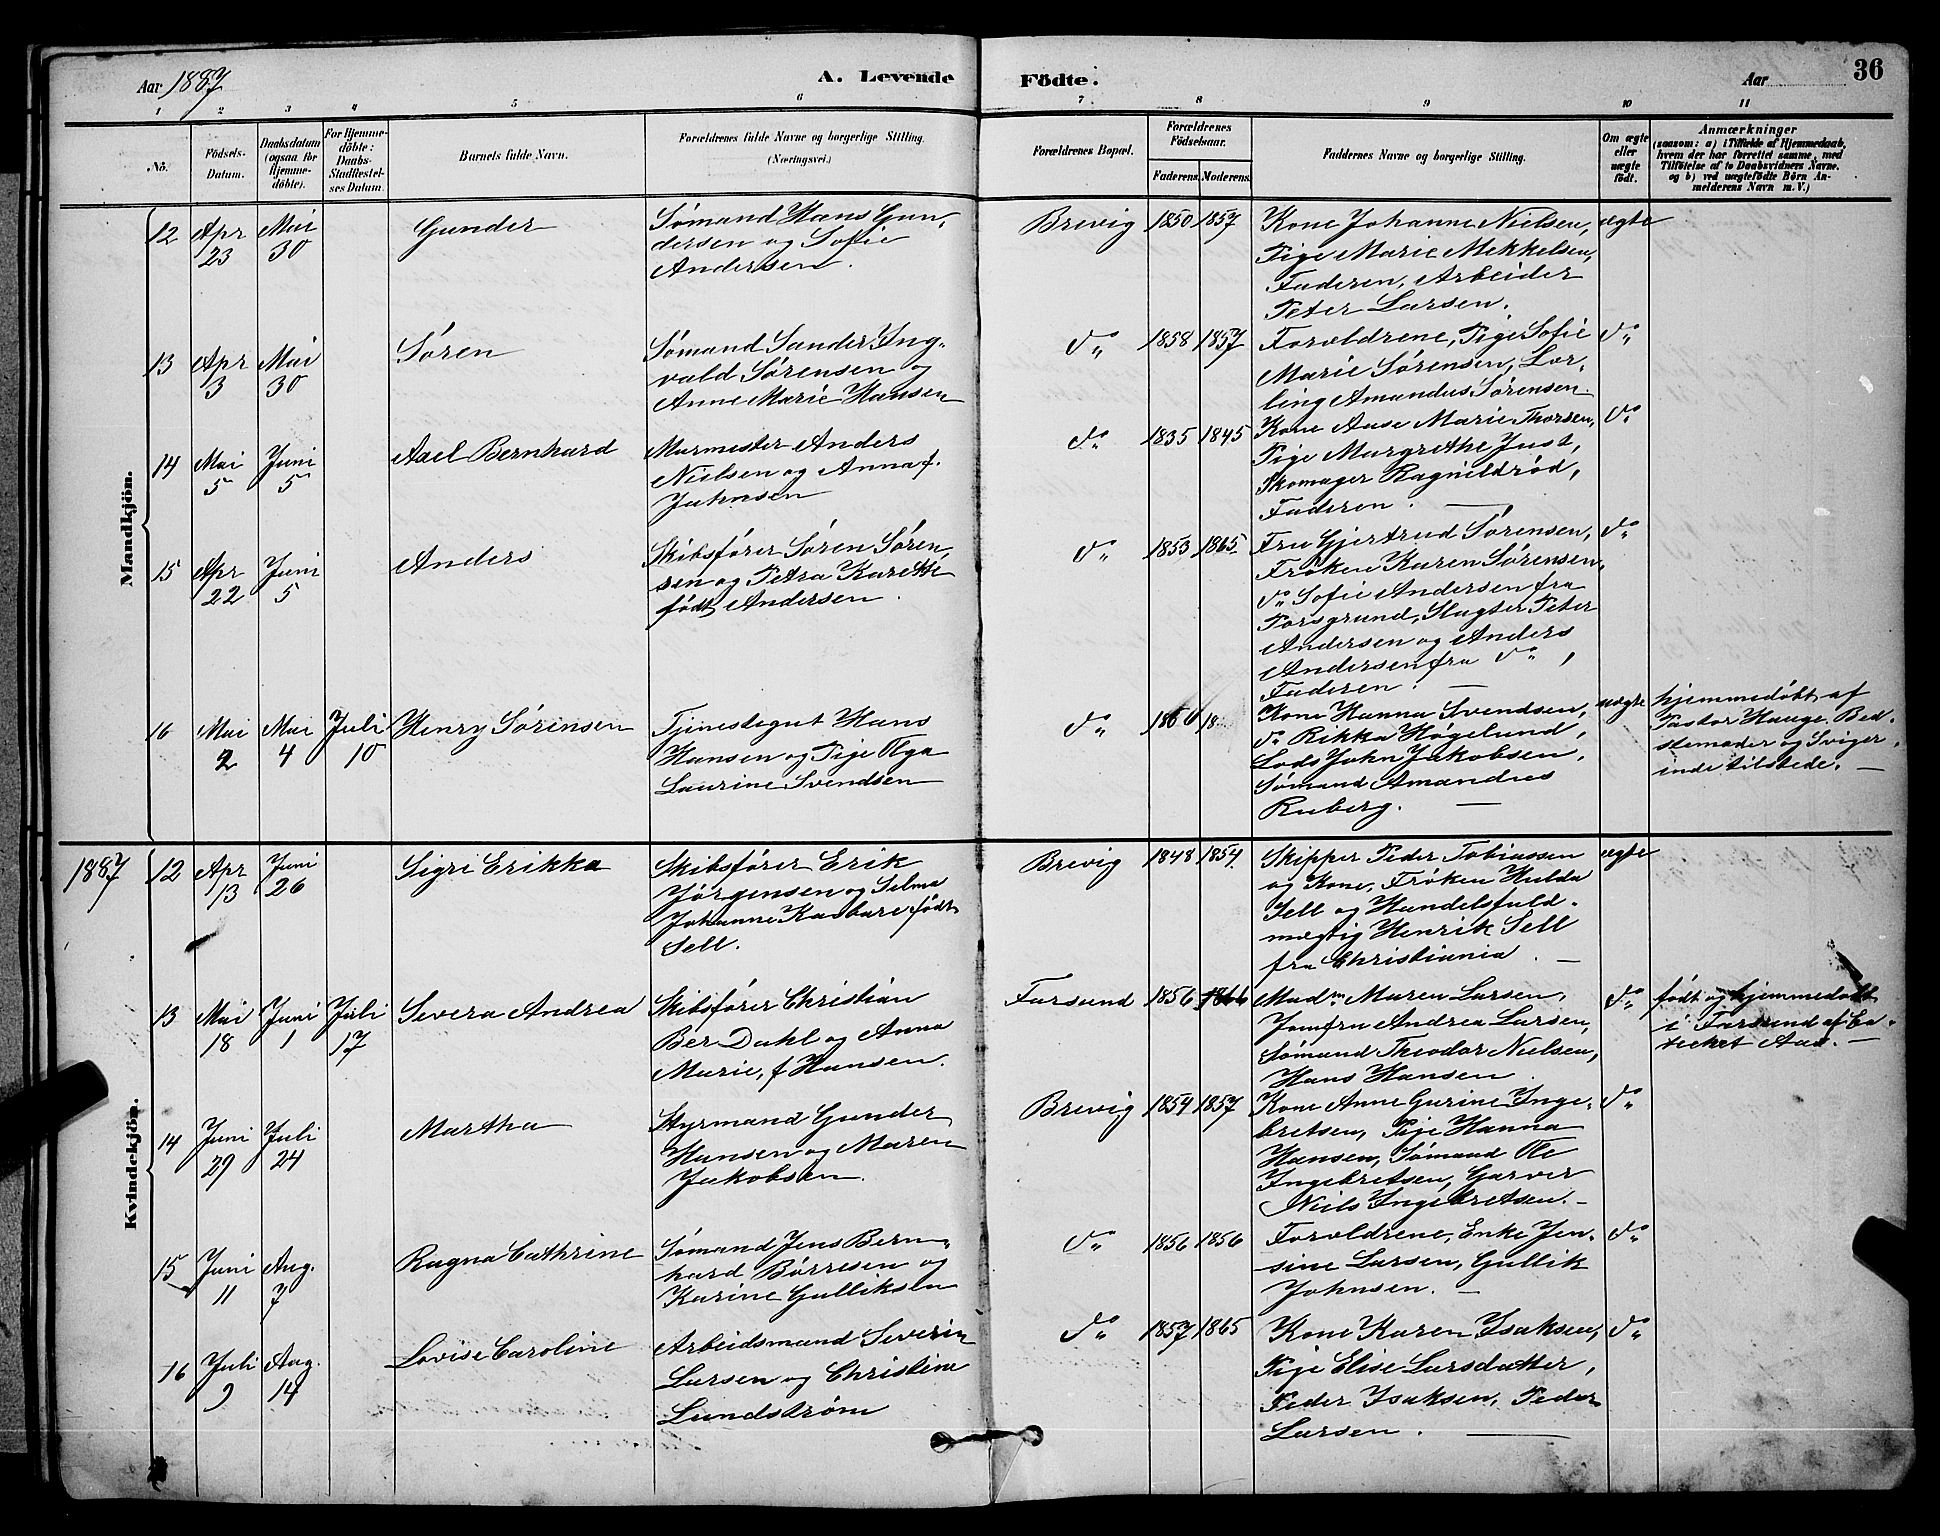 Aar 1887
A. Levende Födte.
Aar
36
1 2 3 4 5 6 7 8 9 10 11
No.
Födsels-
Datum.
Daabsdatum
(ogsaa for
Hjemme-
döbte).
For Hjemme-
döbte:
Daabs-
Stadfæstel-
ses Datum.
Barnets fulde Navn.
Forældrenes fulde Navne og borgerlige Stilling.
(Næringsvei.)
Forældrenes Bopæl.
Forældrenes
Födselsaar.
Faderens. Moderens.
Faddernes Navne og borgerlige Stilling.
Om ægte
eller
uægte
födt.
Anmærkninger
(saasom: a) i Tilfælde af Hjemmedaab,
hvem der har forrettet samme, med
Tilföielse af to Daabsvidners Navne,
og b) ved uægtefödte Börn An-
melderens Navn m. V.)
Mandkjön.
12 Apr 23 Mai 30
Gunder
Sømand Hans Gun-
dersen og Sofie
Andersen.
Brevig 1850 1857
Kone Johanne Nielsen,
Pige Marie Mekkelsen,
Faderen, Arbeider
Peter Larsen.
ægte
13 Apr 3 Mai 30
Søren
Sømand Sander Ing-
vald Sørensen og
Anne Marie Hansen
do 1858 1857
Forældrene, Pige Sofie
Marie Sørensen, Lær-
ling Amandus Sørensen.
do
14 Mai 5 Juni 5
Axel Bernhard
Murmester Anders
Nielsen og Anna f.
Jahnsen
do 1835 1845
Kone Aase Marie Thorsen,
Pige Margrethe Just,
Skomager Ragnildrød,
Faderen.
do
15 Apr 22 Juni 5
Anders
Skibsfører Søren Søren-
sen og Petra Karethe
født Andersen.
do 1853 1865
Fru Gjertrud Sørensen,
Frøken Karen Sørensen,
do Sofie Andersen fra
Porsgrund, Slagter Peter
Andersen og Anders
Andersen fra do,
Faderen.
do
16 Mai 2 Mai 4 Juli 10
Henry Sørensen
Tjenestegut Hans
Hansen og Pige Olga
Laurine Svendsen
do 18
Kone Hanna Svendsen,
do Rikka Høgelund,
Lods John Jakobsen,
Sømand Amandus
Ruberg.
uægte
hjemmedøbt af
Pastor Hauge. Bed-
stemoder og Sviger-
inde tilstede.
1887
Kvindekjön.
12 Apr 13 Juni 26
Sigri Erikka
Skibsfører Erik
Jørgensen og Selma
Johanne Kasbare født
Sell.
Brevig 1848 1854
Skipper Peder Tobiassen
og Kone, Frøken Hulda
Sell og Handelsfuld-
mægtig Henrik Sell
fra Christiania.
ægte
13 Mai 18 Juni 1 Juli 17
Severa Andrea
Skibsfører Christian
Ber Dahl og Anna
Marie, f Hansen.
Farsund 1856 1866
Madm Maren Larsen,
Jomfru Andrea Larsen,
Sømand Theodor Nielsen,
Hans Hansen.
do
født og hjemmedøbt
i Farsund af Ca-
techet Aas.
14 Juni 29 Juli 24
Martha
Styrmand Gunder
Hansen og Maren
Jakobsen.
Brevig 1854 1857
Kone Anne Gurine Inge-
bretsen, Pige Hanna
Hansen, Sømand Ole
Ingebretsen, Garver
Niels Ingebretsen.
do
15 Juni 11 Aug. 7
Ragna Cathrine
Sømand Jens Bern-
hard Børresen og
Karine Gulliksen
do 1856 1856
Forældrene, Enke Jen-
sine Larsen, Gullik
Johnsen.
do
16 Juli 9 Aug. 14
Lovise Caroline
Arbeidsmand Severin
Larsen og Christine
Lundstrøm
do 1857 1865
Kone Karen Isaksen,
Pige Elise Larsdatter,
Peder Isaksen, Peder
Larsen.
do